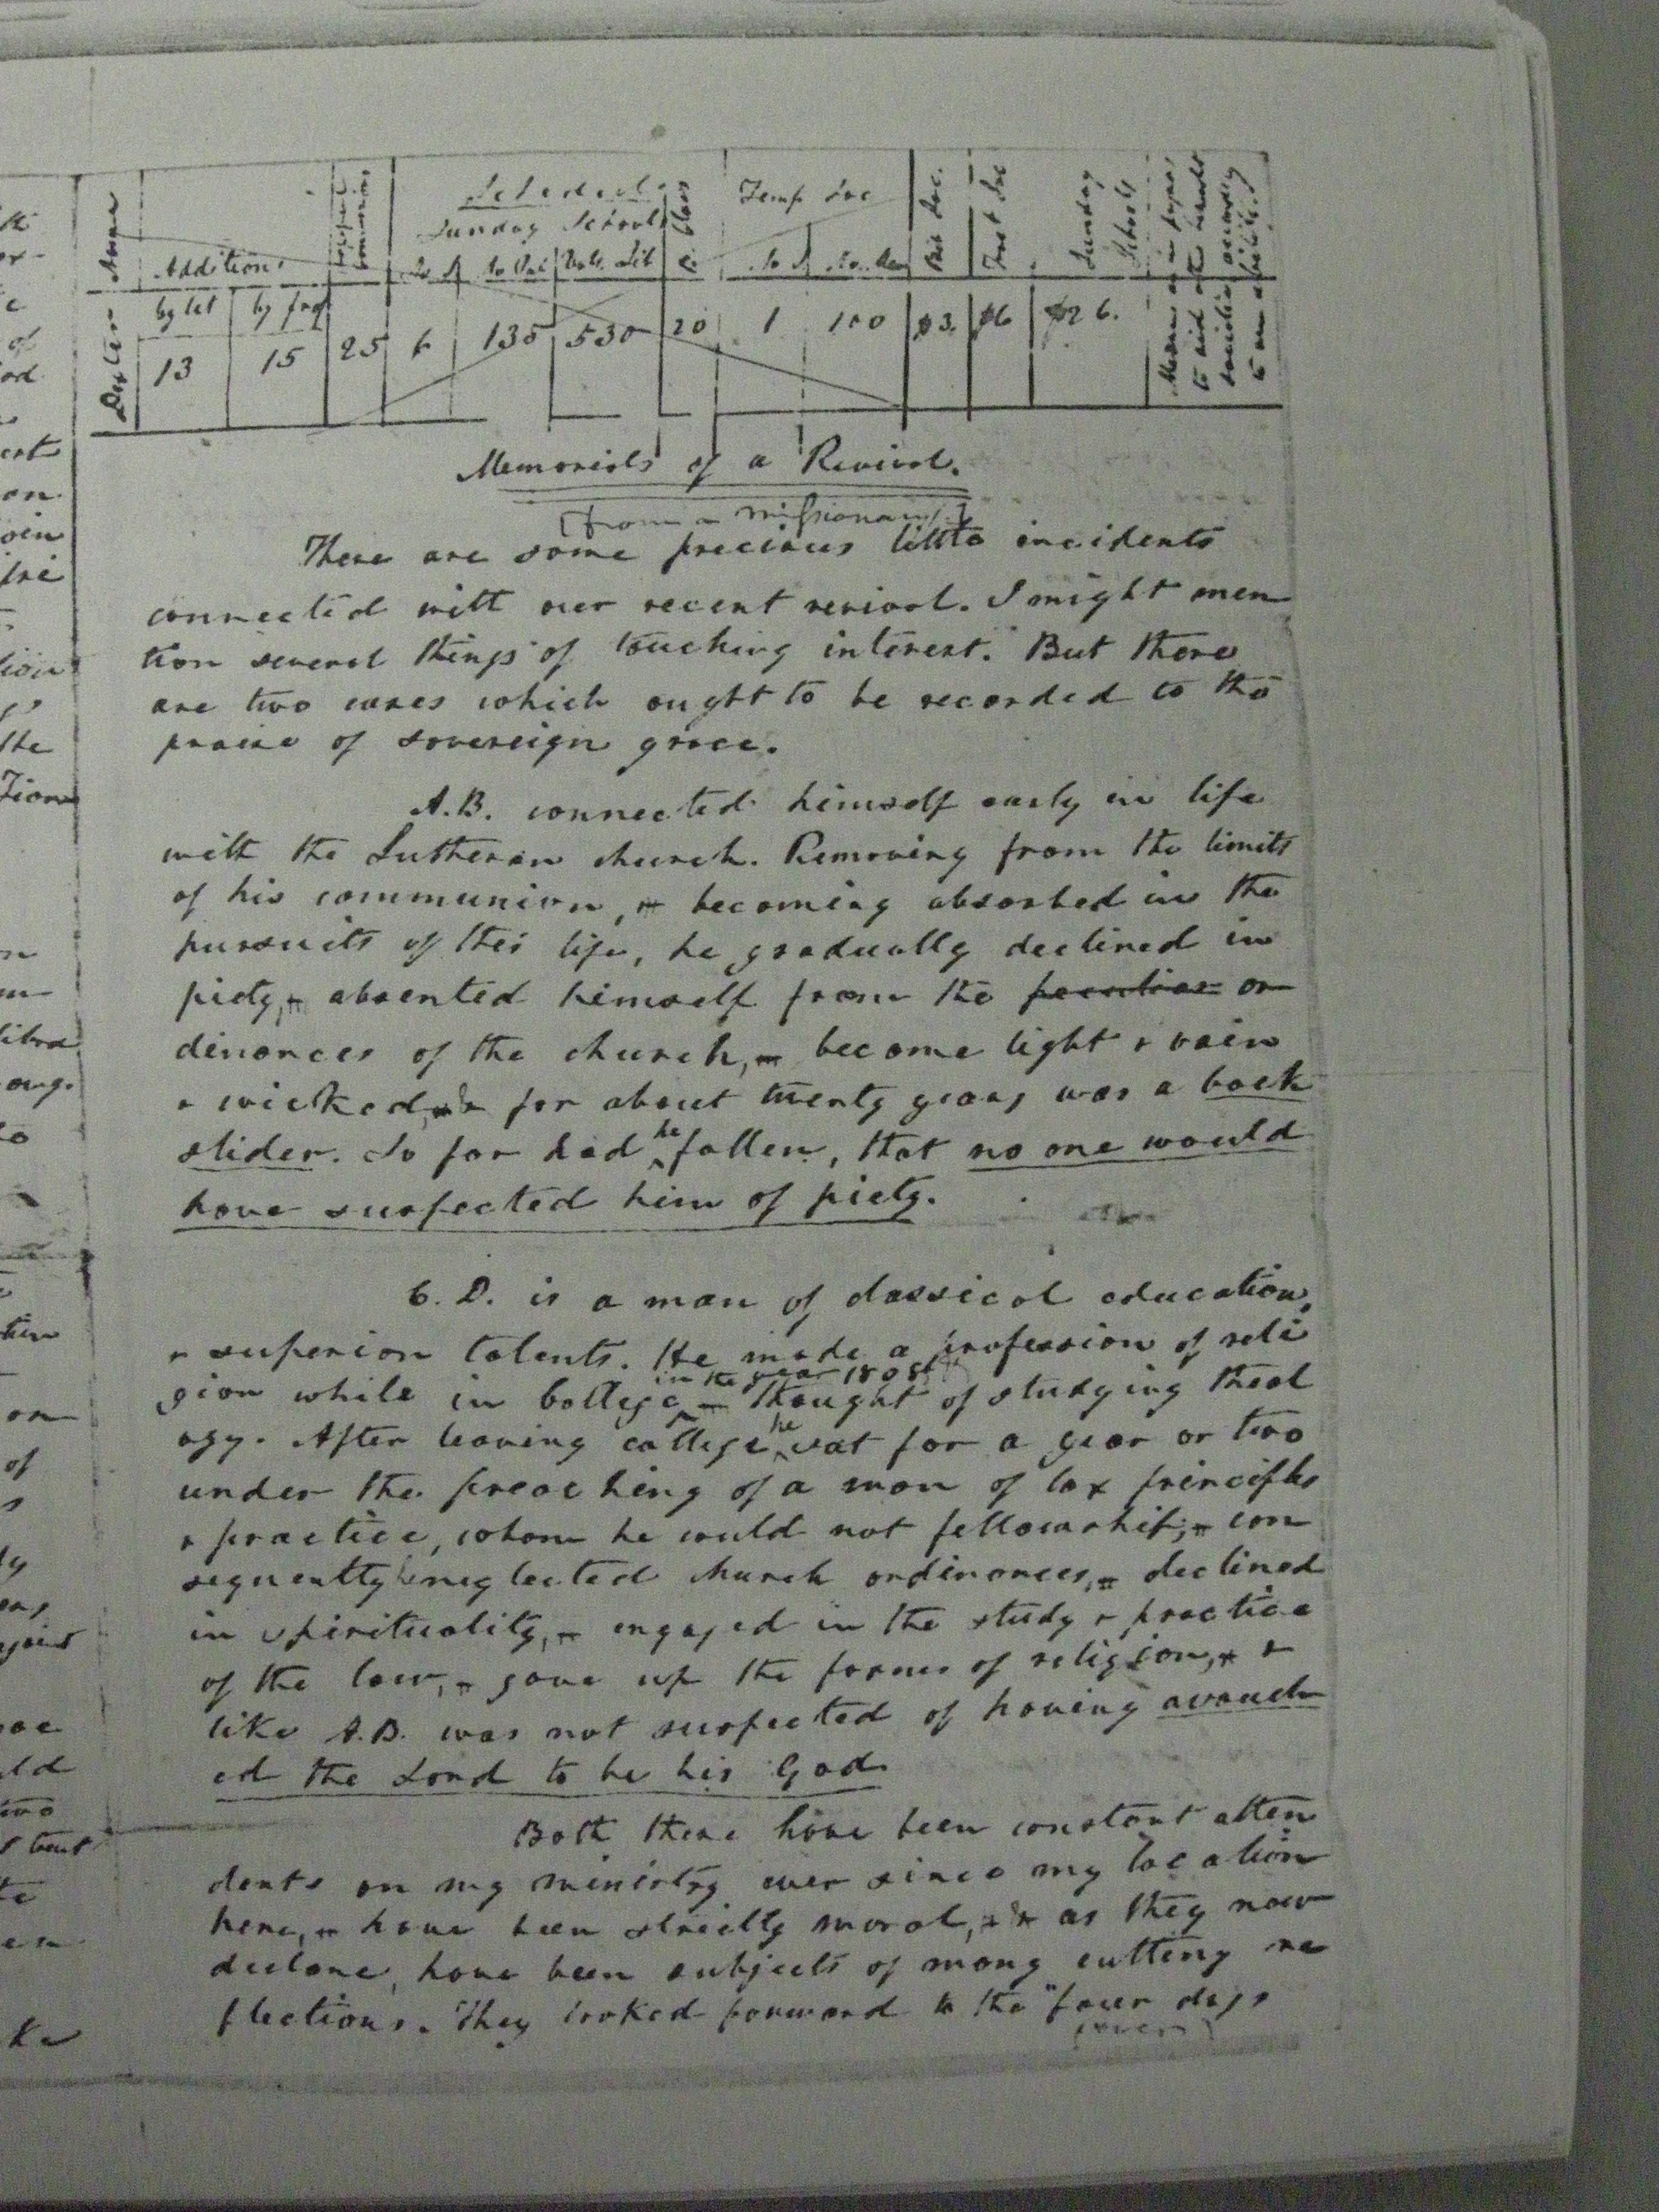 Additions
Sunday Schools
Temp Soc
Bib Soc.
Tract Soc
Sunday Schools
by let by prof
13 15 25 6 135 530 20 1 100 $3. $6 $26.
Memorials of a Revival.
[from a missionary.]
There are some precious little incidents
connected with our recent revival. I might men
tion several things of touching interest. But there
are two cases which ought to be recorded to the
praise of sovereign grace.
A.B. connected himself early in life
with the Lutheran church. Removing from the limits
of his communion, becoming absorbed in the
pursuits of this life, he gradually declined in
piety, absented himself from the peculiar or
dinances of the church, become light & vain
& wicked, & for about twenty years was a back
slider. So far had he fallen, that no one would
have suspected him of piety.
C.D. is a man of classical education,
& superior talents. He made a profession of reli
gion while in college in the year 1808 thought of studying theol
ogy. After leaving college he sat for a year or two
under the preaching of a man of lax principles
& practice, whom he could not fellowship; con
sequently he neglected church ordinances, declined
in spirituality, engaged in the study & practice
of the law, gave up the forms of religion, &
like A.B. was not suspected of having avouch
ed the Lord to be his God.
Both these have been constant atten
dants on my ministry ever since my location
here, have been strictly moral, & as they now
declare, have been subjects of many cutting re
flections. They looked forward to the "four days